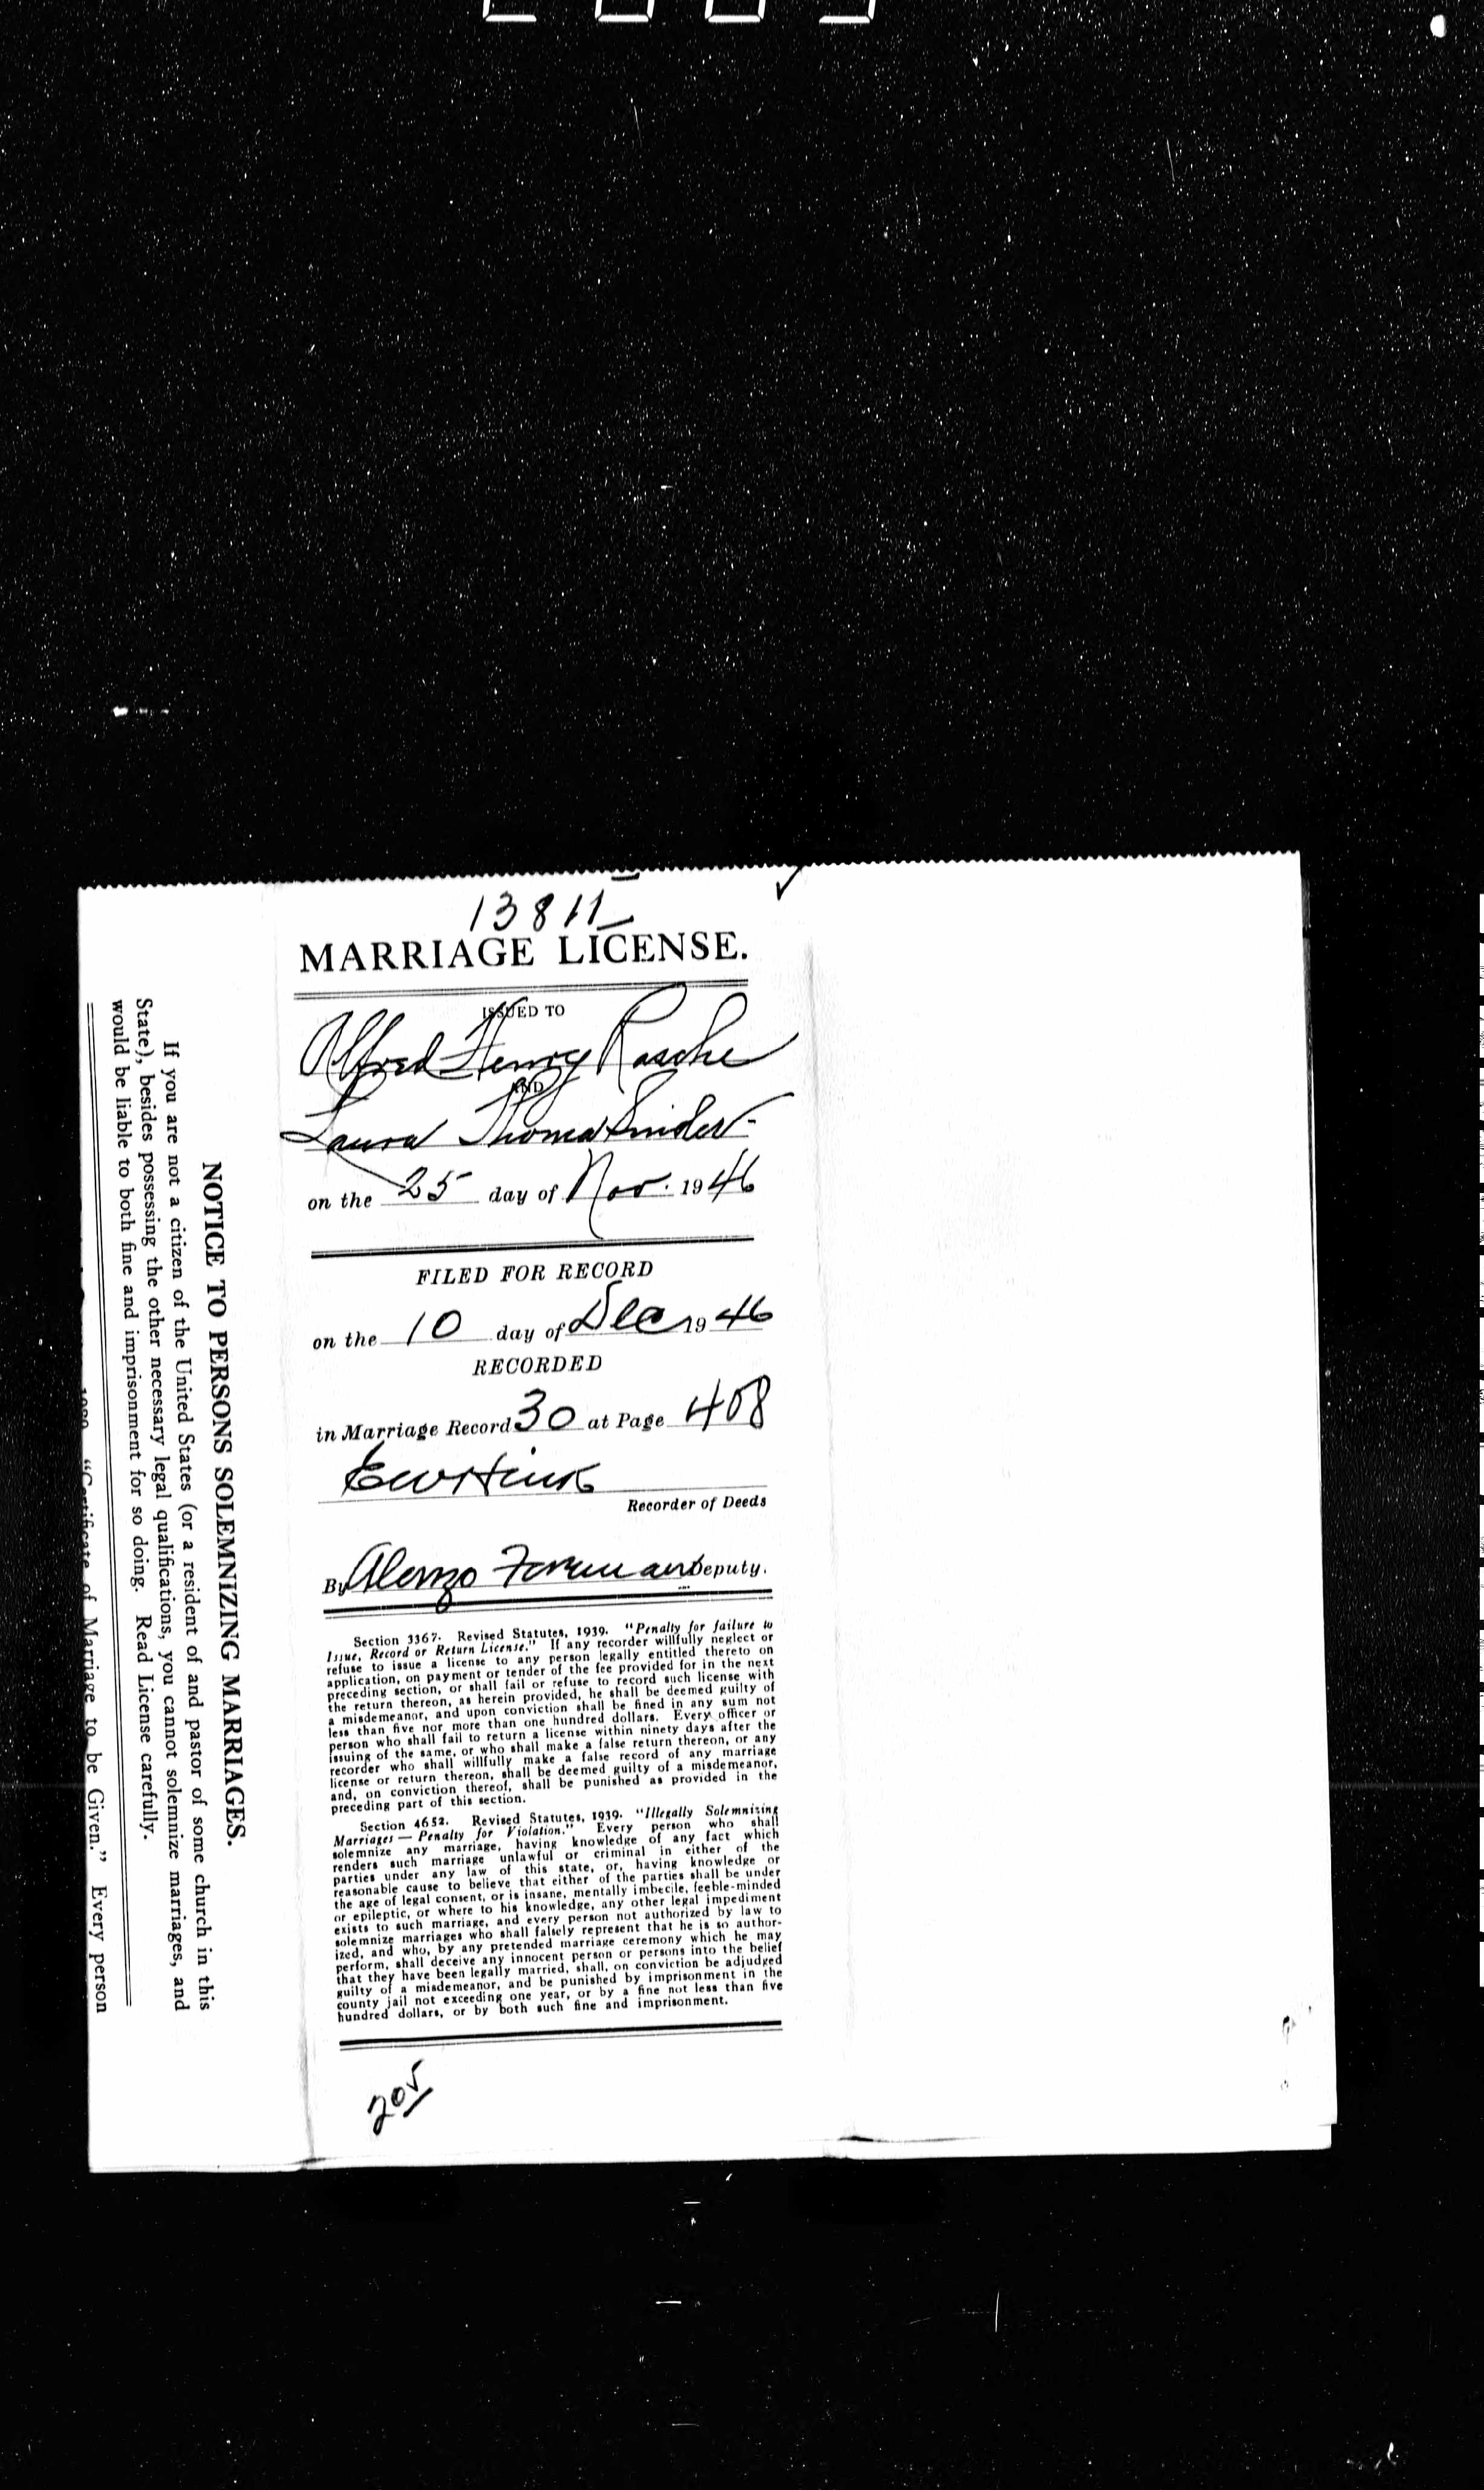 13811
MARRIAGE LICENSE.
ISSUED TO
Alfred Henry Rasche
AND
Laura Thoma Snider
on the 25 day of Nov. 1946
FILED FOR RECORD
on the 10 day of Dec 1946
RECORDED
in Marriage Record 30 at Page 408
Recorder of Deeds
By Alonzo Foreman Deputy.
Section 3367. Revised Statutes, 1939. "Penalty for failure to
Issue, Record or Return License." If any recorder willfully neglect or
refuse to issue a license to any person legally entitled thereto on
application, on payment or tender of the fee provided for in the next
preceding section, or shall fail or refuse to record such license with
the return thereon, as herein provided, he shall be deemed guilty of
a misdemeanor, and upon conviction shall be fined in any sum not
less than five nor more than one hundred dollars. Every officer or
person who shall fail to return a license within ninety days after the
issuing of the same, or who shall make a false return thereon, or any
recorder who shall willfully make a false record of any marriage
license or return thereon, shall be deemed guilty of a misdemeanor,
and, on conviction thereof, shall be punished as provided in the
preceding part of this section.
Section 4652. Revised Statutes, 1939. "Illegally Solemnizing
Marriages — Penalty for Violation." Every person who shall
solemnize any marriage, having knowledge of any fact which
renders such marriage unlawful or criminal in either of the
parties under any law of this state, or, having knowledge or
reasonable cause to believe that either of the parties shall be under
the age of legal consent, or is insane, mentally imbecile, feeble-minded
or epileptic, or where to his knowledge, any other legal impediment
exists to such marriage, and every person not authorized by law to
solemnize marriages who shall falsely represent that he is so author-
ized, and who, by any pretended marriage ceremony which he may
perform, shall deceive any innocent person or persons into the belief
that they have been legally married, shall, on conviction be adjudged
guilty of a misdemeanor, and be punished by imprisonment in the
county jail not exceeding one year, or by a fine not less than five
hundred dollars, or by both such fine and imprisonment.
205
NOTICE TO PERSONS SOLEMNIZING MARRIAGES.
If you are not a citizen of the United States (or a resident of and pastor of some church in this
State), besides possessing the other necessary legal qualifications, you cannot solemnize marriages, and
would be liable to both fine and imprisonment for so doing. Read License carefully.
"Certificate of Marriage to be Given." Every person